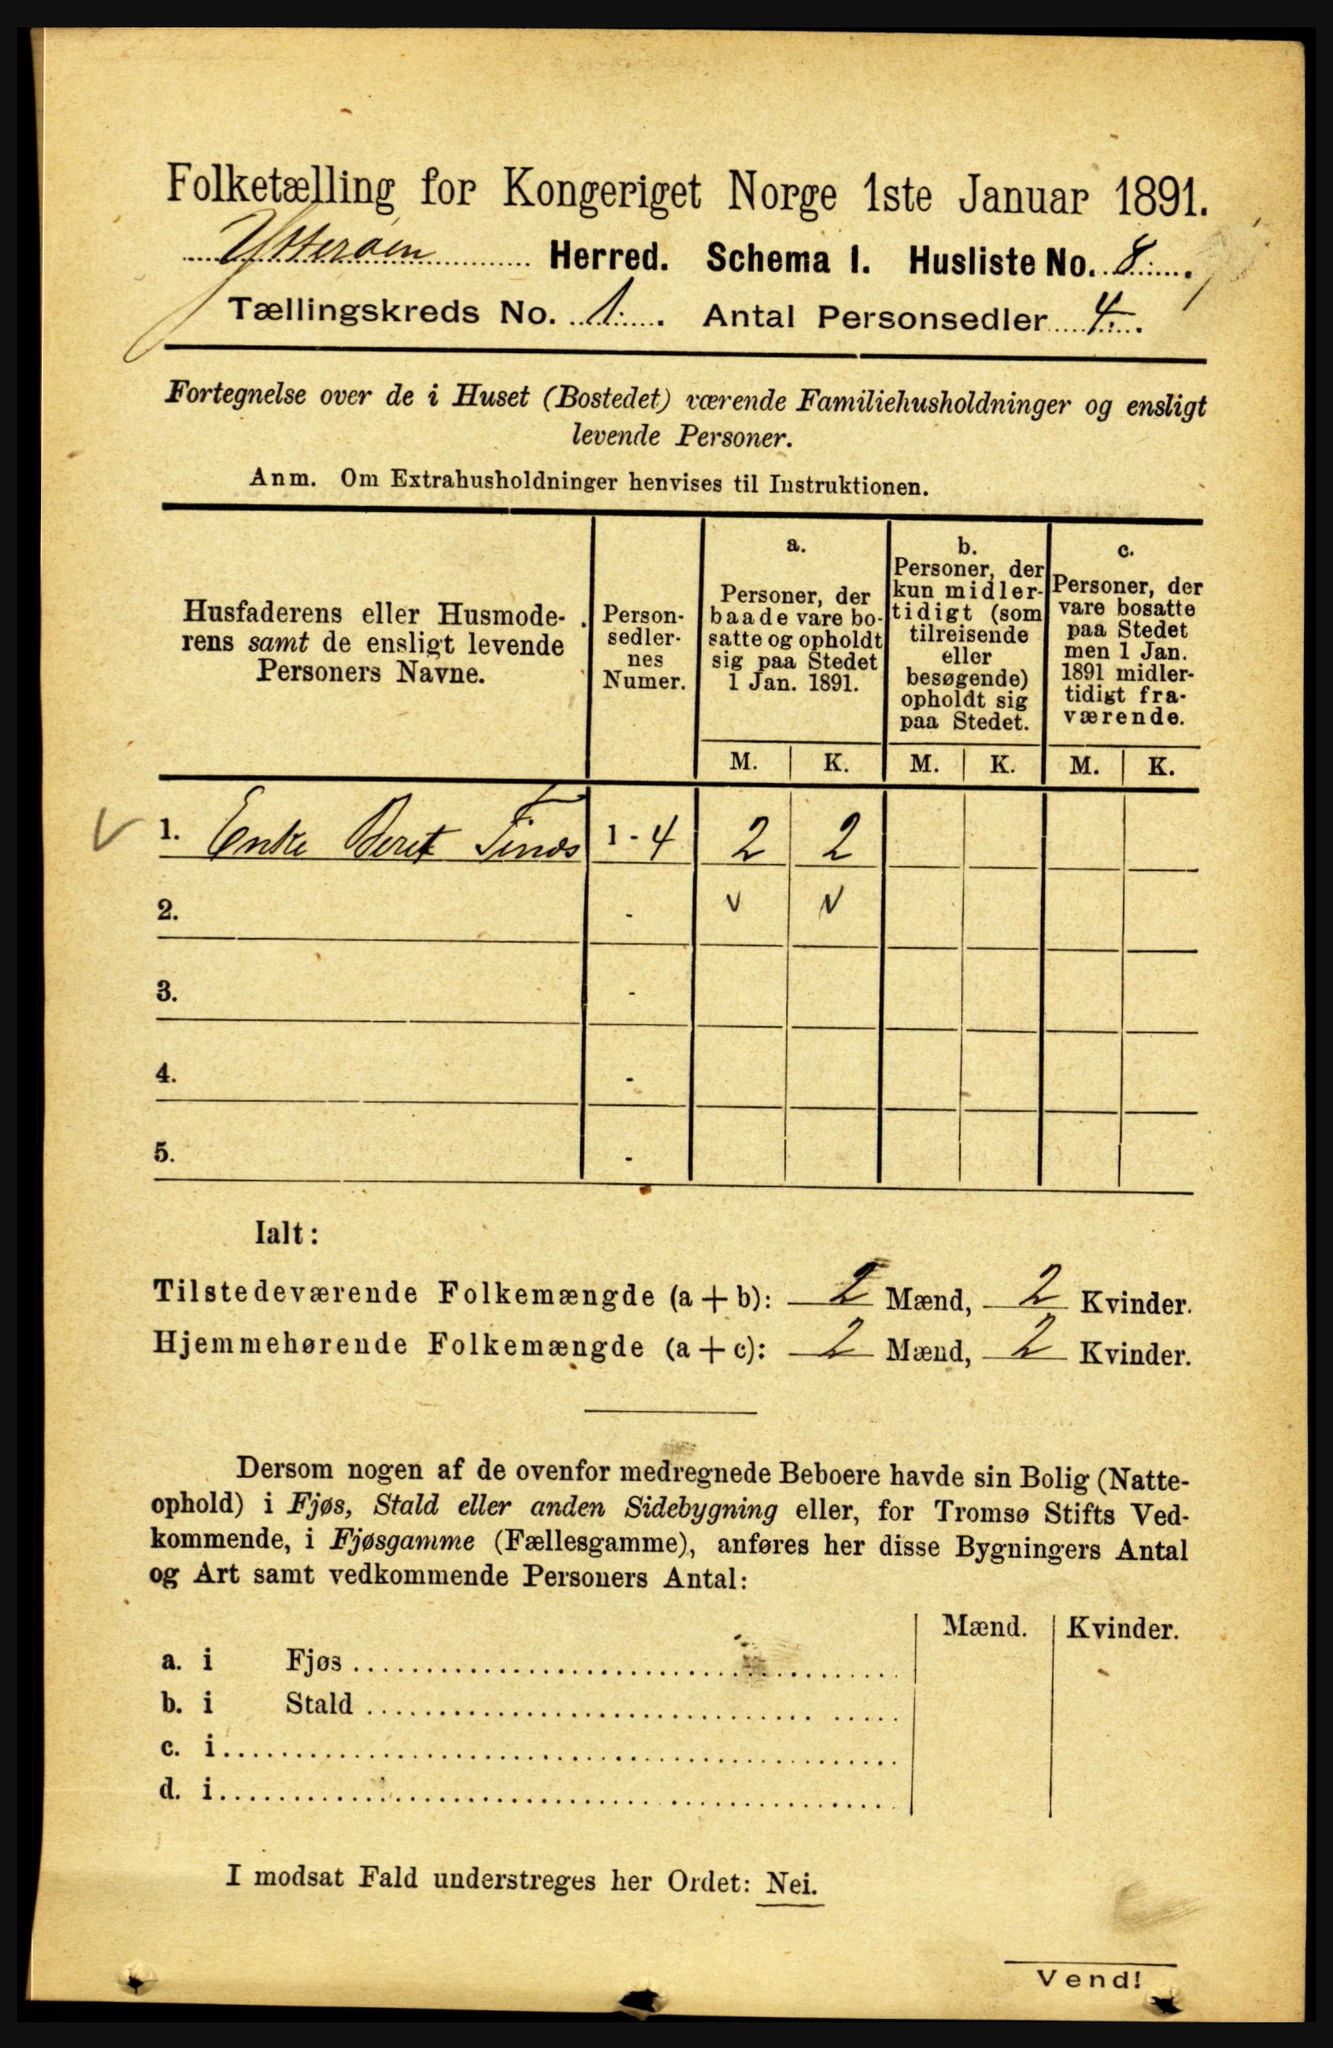 Folketælling for Kongeriget Norge 1ste Januar 1891.
Ytterøen Herred. Schema I. Husliste No. 8.
Tællingskreds No. 1. Antal Personsedler 4.
Fortegnelse over de i Huset (Bostedet) værende Familiehusholdninger og ensligt
levende Personer.
Anm. Om Extrahusholdninger henvises til Instruktionen.
Husfaderens eller Husmode-
rens samt de ensligt levende
Personers Navne.
Person-
sedler-
nes
Numer.
a.
Personer, der
baade vare bo-
satte og opholdt
sig paa Stedet
1 Jan. 1891.
b.
Personer, der
kun midler-
tidigt (som
tilreisende
eller
besøgende)
opholdt sig
paa Stedet.
c.
Personer, der
vare bosatte
paa Stedet
men 1 Jan.
1891 midler-
tidigt fra-
værende.
M. K. M. K. M. K.
1. Enke Beret 1 - 4 2 2
2. - v v
3. -
4. -
5. -
Ialt:
Tilstedeværende Folkemængde (a + b): 2 Mænd, 2 Kvinder.
Hjemmehørende Folkemængde (a + c): 2 Mænd, 2 Kvinder.
Dersom nogen af de ovenfor medregnede Beboere havde sin Bolig (Natte-
ophold) i Fjøs, Stald eller anden Sidebygning eller, for Tromsø Stifts Ved-
kommende, i Fjøsgamme (Fællesgamme), anføres her disse Bygningers Antal
og Art samt vedkommende Personers Antal:
Mænd. Kvinder.
a. i Fjøs
b. i Stald
c. i
d. i
I modsat Fald understreges her Ordet: Nei.
Vend!